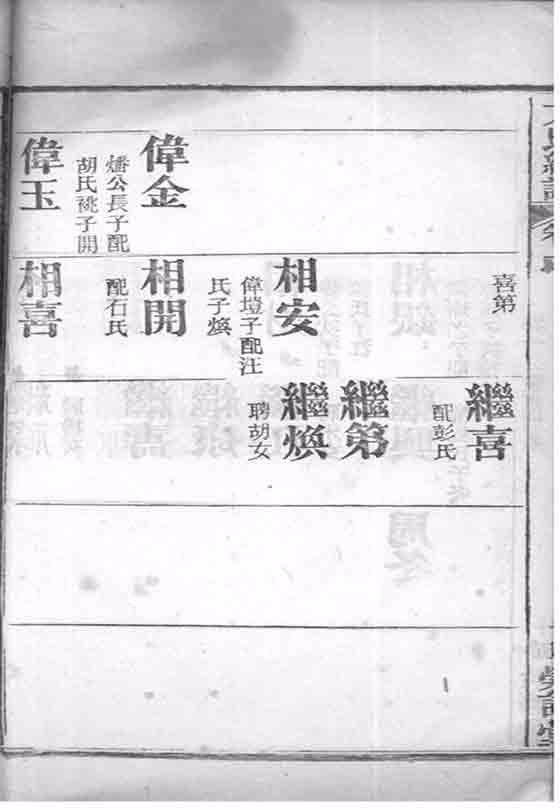 偉金
燔公長子配
胡氏祧子開
偉玉
喜第
相安
偉塏子配汪
氏子煥
相開
配石氏
相喜
繼喜
配彭氏
繼第
繼煥
聘胡女